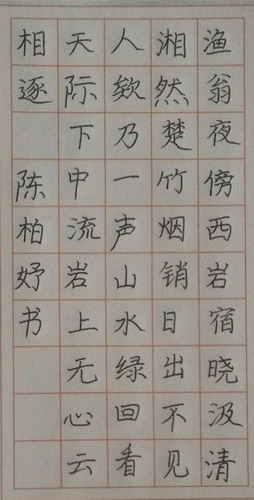 渔翁夜傍西岩宿晓汲清
湘然楚竹烟销日出不见
人欸乃一声山水绿回看
天际下中流岩上无心云
相逐 陈柏妤书